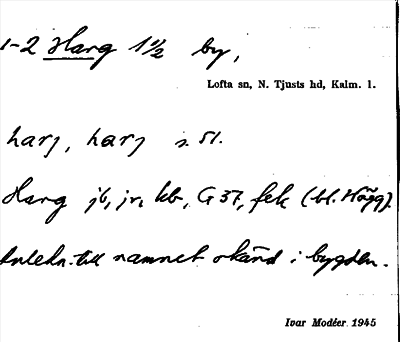 1-2 Harg 1 1/2 by,
Lofta sn, N. Tjusts hd, Kalm. l.
harj, harj s. 51.
Harg jb, jr, kb, G 37, fek (bl. Högg).
Anledn. till namnet okänd i bygden.
Ivar Modéer 1945